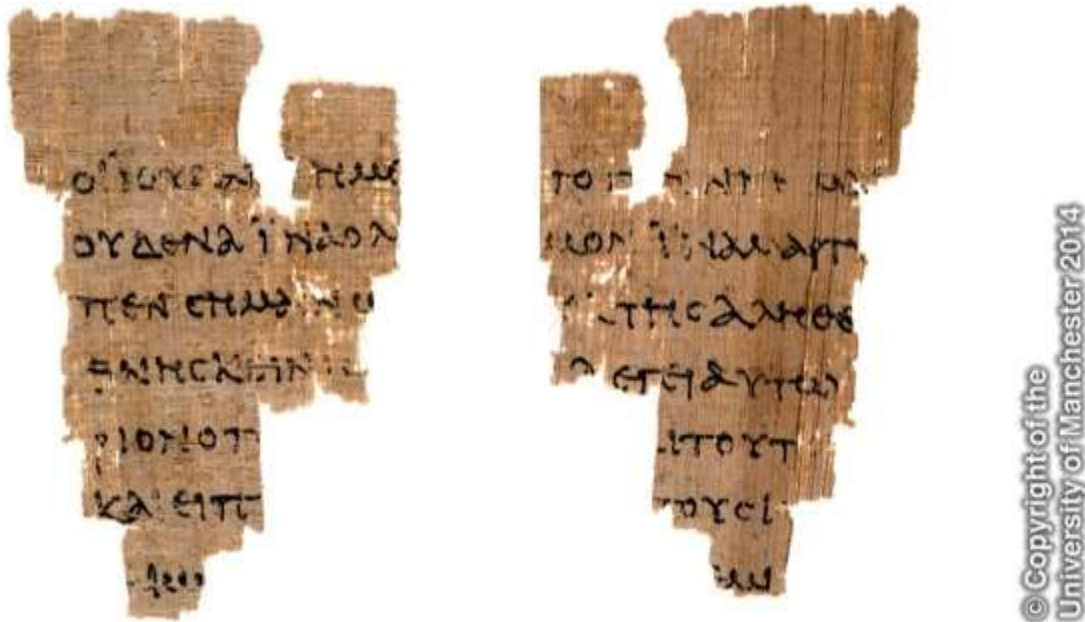 ΟΙ ΙΟΥΔΑΙ ΗΜΕ
ΟΥΔΕΝΑ ΪΝΑ Ο Λ
ΠΕΝ CΗΜΑΙΝΩ
ΘΝΗCΚΕΙΝ ΙC
ΡΙΟΝ Ο Π
ΚΑΙ ΕΙΠ
ΜΟΝ ΪΝΑ ΜΑΡΤΥ
ΤΗC ΑΛΗΘΕ
ΛΕΓΕΙ ΑΥΤΩ
ΤΟΥΤ
ΤΟΥC Ι
© Copyright of the
University of Manchester 2014